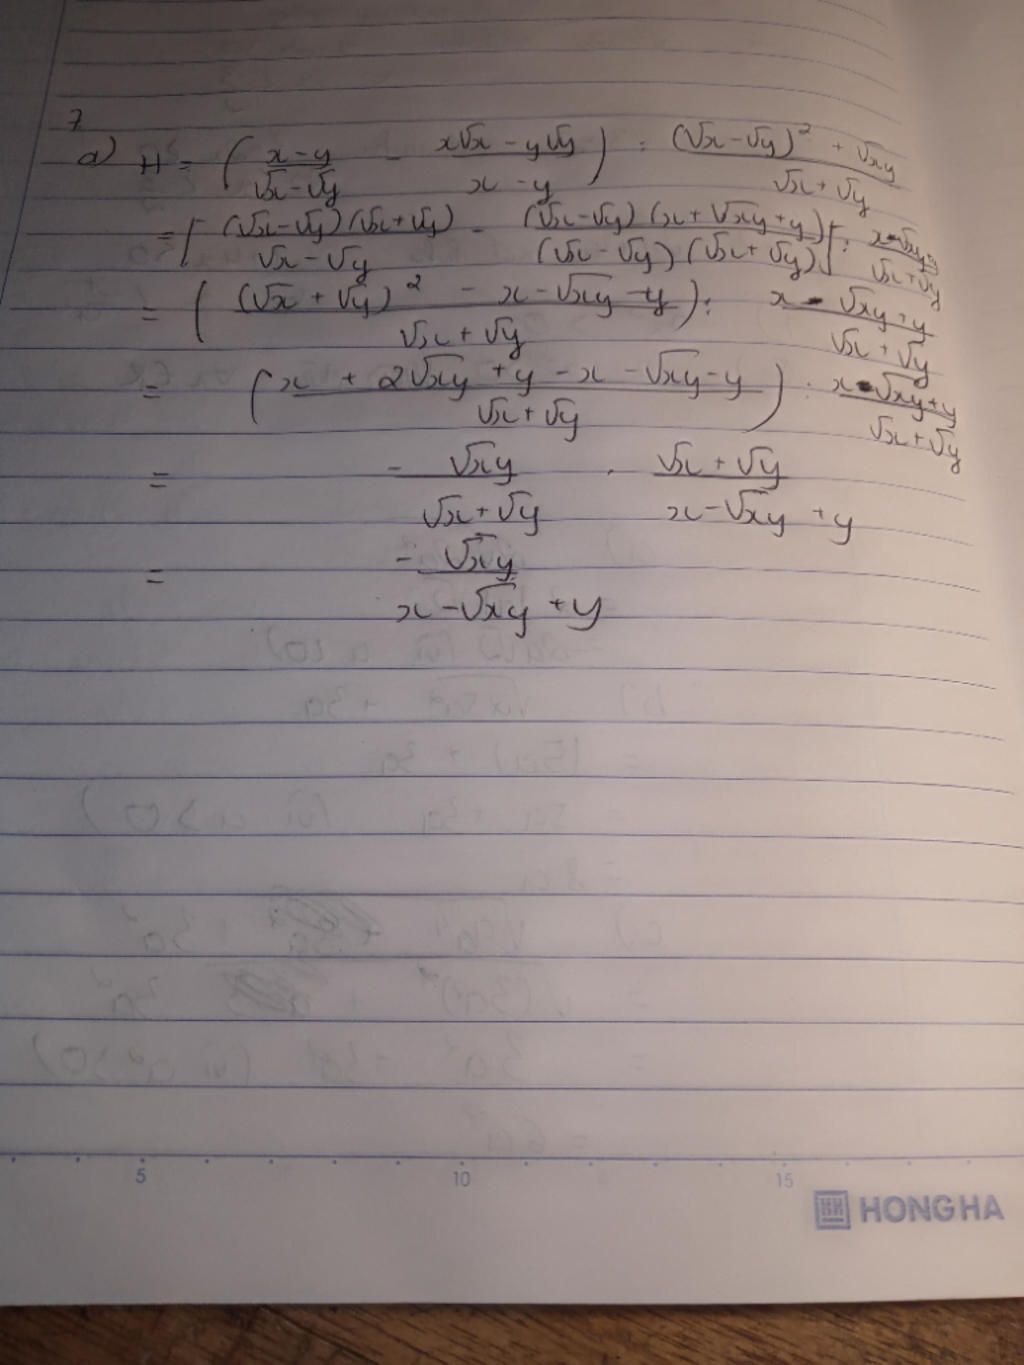 7
a) H = ( (x-y)/(√x-√y) - (x√x - y√y)/(x-y) ) : ((√x-√y)² + √xy)/(√x+√y)
= [ (√x-√y)(√x+√y)/(√x-√y) - (√x-√y)(x+√xy+y)/((√x-√y)(√x+√y)) ] : (x-√xy+y)/(√x+√y)
= ( ((√x+√y)² - x-√xy-y)/(√x+√y) ) : (x-√xy+y)/(√x+√y)
= ( (x + 2√xy + y - x - √xy - y)/(√x+√y) ) : (x-√xy+y)/(√x+√y)
= - √xy/(√x+√y) . (√x+√y)/(x-√xy+y)
= - √xy/(x-√xy+y)
5 10 15
HONG HA